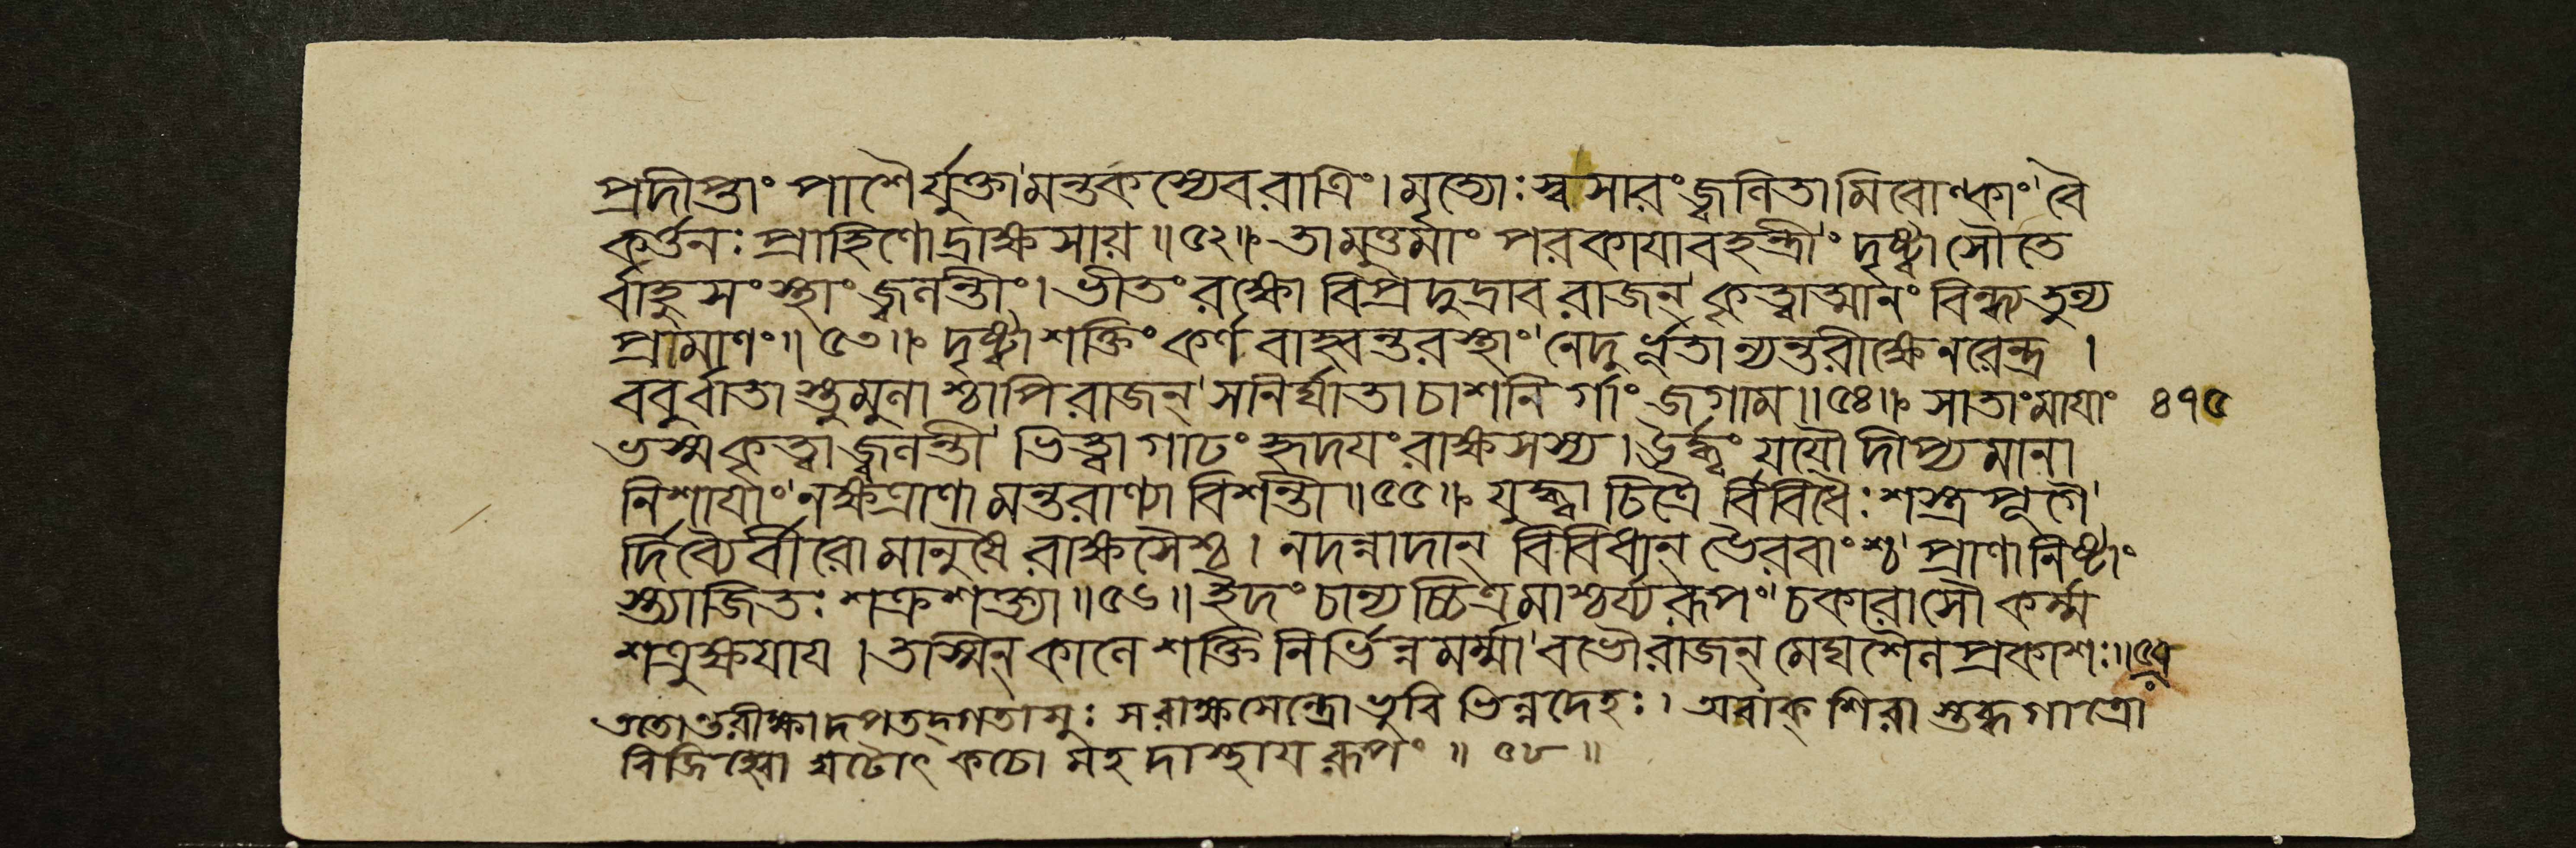 প্রদীপ্তাং পাশৈর্যুক্তা'মন্তকস্যেবরাত্রিং। মৃত্যোঃস্বসারংজ্বলিতামিবোল্কাং'বৈ
কর্ত্তনঃ প্রাহিণোদ্রাক্ষসায়॥৫২॥ তামুত্তমাং পরকাযাবহন্ত্রীং'দৃষ্ট্বাসৌতে
র্বাহুসংস্থাংজ্বলন্তীং। ভীতংরক্ষো বিপ্রদুদ্রাবরাজন্'কৃত্বাত্মানং বিন্ধ্যতুল্য
প্রমাণং॥৫৩॥ দৃষ্ট্বাশক্তিংকর্ণবাহ্বন্তরস্থাং'নেদুর্ভূতান্যন্তরীক্ষেনরেন্দ্র।
ববুর্বাতাস্তুমুলাশ্চাপিরাজন্'সনির্ঘাতাচাশনির্গাংজগাম॥৫৪॥ সাতাংমাযাং ৪৭৫
ভস্মকৃত্বাজ্বলন্তী'ভিত্ত্বাগাঢংহৃদযংরাক্ষসস্য। ঊর্দ্ধ্বংযযৌদীপ্যমানা
নিশাযাং'নক্ষত্রাণামন্তরাণ্যাবিশন্তী॥৫৫॥ যুদ্ধ্বাচিত্রৈর্বিবিধৈঃশস্ত্রপূগৈ'
র্দিব্যৈর্বীরোমানুষৈরাক্ষসৈশ্চ। নদন্নাদান্ বিবিধান্ ভৈরবাংশ্চ'প্রাণানিষ্টাং
স্ত্যাজিতঃশক্রশক্ত্যা॥৫৬॥ ইদংচান্যচ্চিত্রমাশ্চর্য্যরূপং'চকারাসৌকর্ম্ম
শত্রুক্ষযায। তস্মিন্কালেশক্তিনির্ভিন্নমর্ম্মা'বভৌরাজন্ মেঘশৈলপ্রকাশঃ॥৫৭
ততোন্তরীক্ষাদপতদ্গতাসুঃ সরাক্ষসেন্দ্রোভুবিভিন্নদেহঃ। অবাক্শিরাস্তব্ধগাত্রো
বিজিহ্বো ঘটোৎকচো মহদাস্থাযরূপং॥৫৮॥